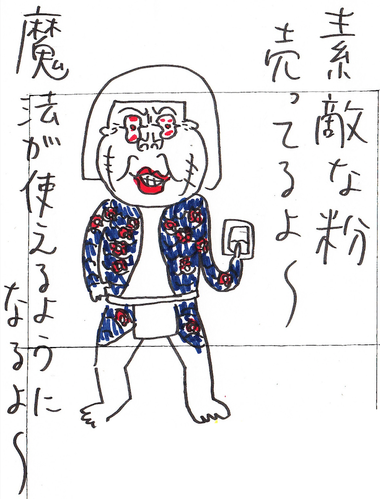 素敵な粉
売ってるよ〜
魔法が使えるように
なるよ〜